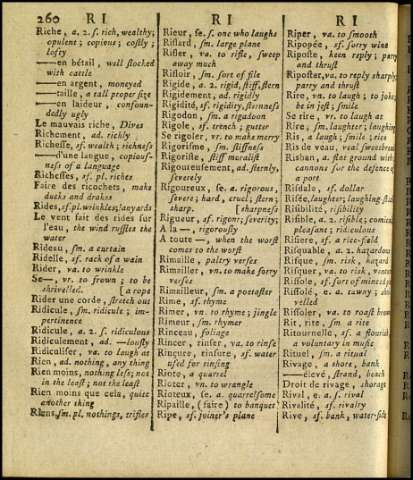 260 R I
R I
R I
Riche, a. 2. s. rich, wealthy;
opulent; copious; costly;
lofty
——en bétail, well stocked
with cattle
——en argent, moneyed
——taille, a tall proper size
——en laideur, confoun-
dedly ugly
Le mauvais riche, Dives
Richement, ad. richly
Richesse, sf. wealth; richness
——d'une langue, copious-
ness of a language
Richesses, sf. pl. riches
Faire des ricochets, make
ducks and drakes
Rides, sf. pl. wrinkles; lanyards
Le vent fait des rides sur
l'eau, the wind ruffles the
water
Rideau, sm. a curtain
Ridelle, sf. rack of a wain
Rider, va. to wrinkle
Se—, vr. to frown; to be
shrivelled. [a rope
Rider une corde, stretch out
Ridicule, sm. ridicule; im-
pertinence
Ridicule, a. 2. s. ridiculous
Ridiculement, ad. —lously
Ridiculiser, va. to laugh at
Rien, ad. nothing, any thing
Rien moins, nothing less; not
in the least; not the least
Rien moins que cela, quite
another thing
Riens, sm. pl. nothings, trifles
Rieur, se. s. one who laughs
Riflard, sm. large plane
Rifler, va. to rifle, sweep
away much
Rifloir, sm. sort of file
Rigide, a. 2. rigid, stiff, stern
Rigidement, ad. rigidly
Rigidité, sf. rigidity, sternness
Rigodon, sm. a rigadoon
Rigole, sf. trench; gutter
Se rigoler, vr. to make merry
Rigorisme, sm. stiffness
Rigoriste, stiff moralist
Rigoureusement, ad. sternly,
severely
Rigoureux, se. a. rigorous,
severe; hard, cruel; stern;
sharp. [sharpness
Rigueur, sf. rigor; severity;
A la —, rigorously
A toute —, when the worst
comes to the worst
Rimaille, paltry verses
Rimailler, vn. to make sorry
verses
Rimailleur, sm. a poetaster
Rime, sf. rhyme
Rimer, vn. to rhyme; jingle
Rimeur, sm. rhymer
Rinceau, foliage
Rincer, rinser, va. to rinse
Rinçure, rinsure, sf. water
used for rinsing
Rioto, a quarrel
Rioter, vn. to wrangle
Rioteux, se. a. quarrelsome
Ripaille, (faire) to banquet
Ripe, sf. joiner's plane
Riper, va. to smooth
Ripopée, sf. sorry wine
Riposte, keen reply; parry
and thrust
Riposter, va. to reply sharply;
parry and thrust
Rire, vn. to laugh; to joke;
be in jest; smile
Se rire, vr. to laugh at
Rire, sm. laughter; laughing
Ris, a laugh; smile; rees
Ris de veau, veal sweetbread
Risban, a flat ground with
cannons for the defence of
a port
Risdale, sf. dollar
Risée, laughter; laughing-stock
Risibilité, risibility
Risible, a. 2. risible; comical,
pleasant; ridiculous
Risière, sf. a rice-field
Risquable, a. 2. hazardous
Risque, sm. risk, hazard
Risquer, va. to risk, venture
Rissole, sf. sort of minced pie
Rissolé, e. a. tawny; shri-
velled
Rissoler, va. to roast brown
Rit, rite, sm. a rite
Ritournelle, sf. a flourish,
a voluntary in music
Rituel, sm. a ritual
Rivage, a shore, bank
——élevé, strand, beach
Droit de rivage, shorage
Rival, e. a. s. rival
Rivalité, sf. rivalry
Rive, sf. bank, water-side